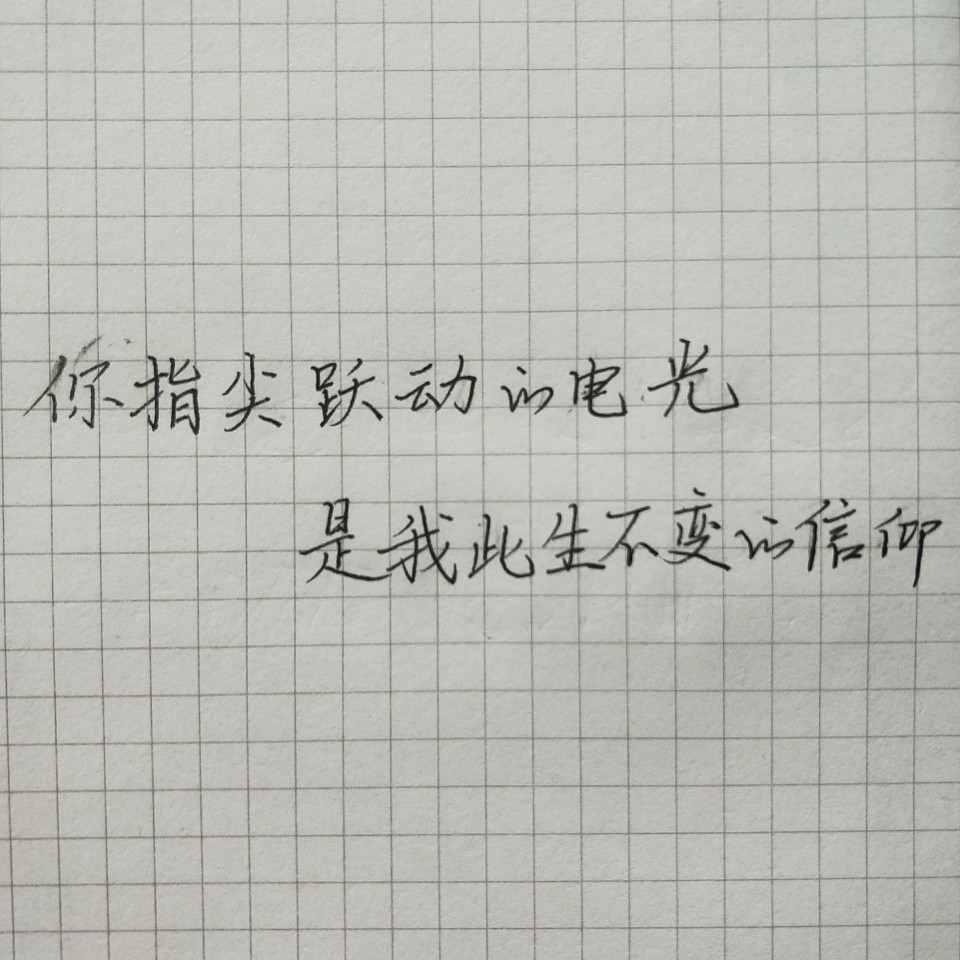 你指尖跃动的电光
是我此生不变的信仰